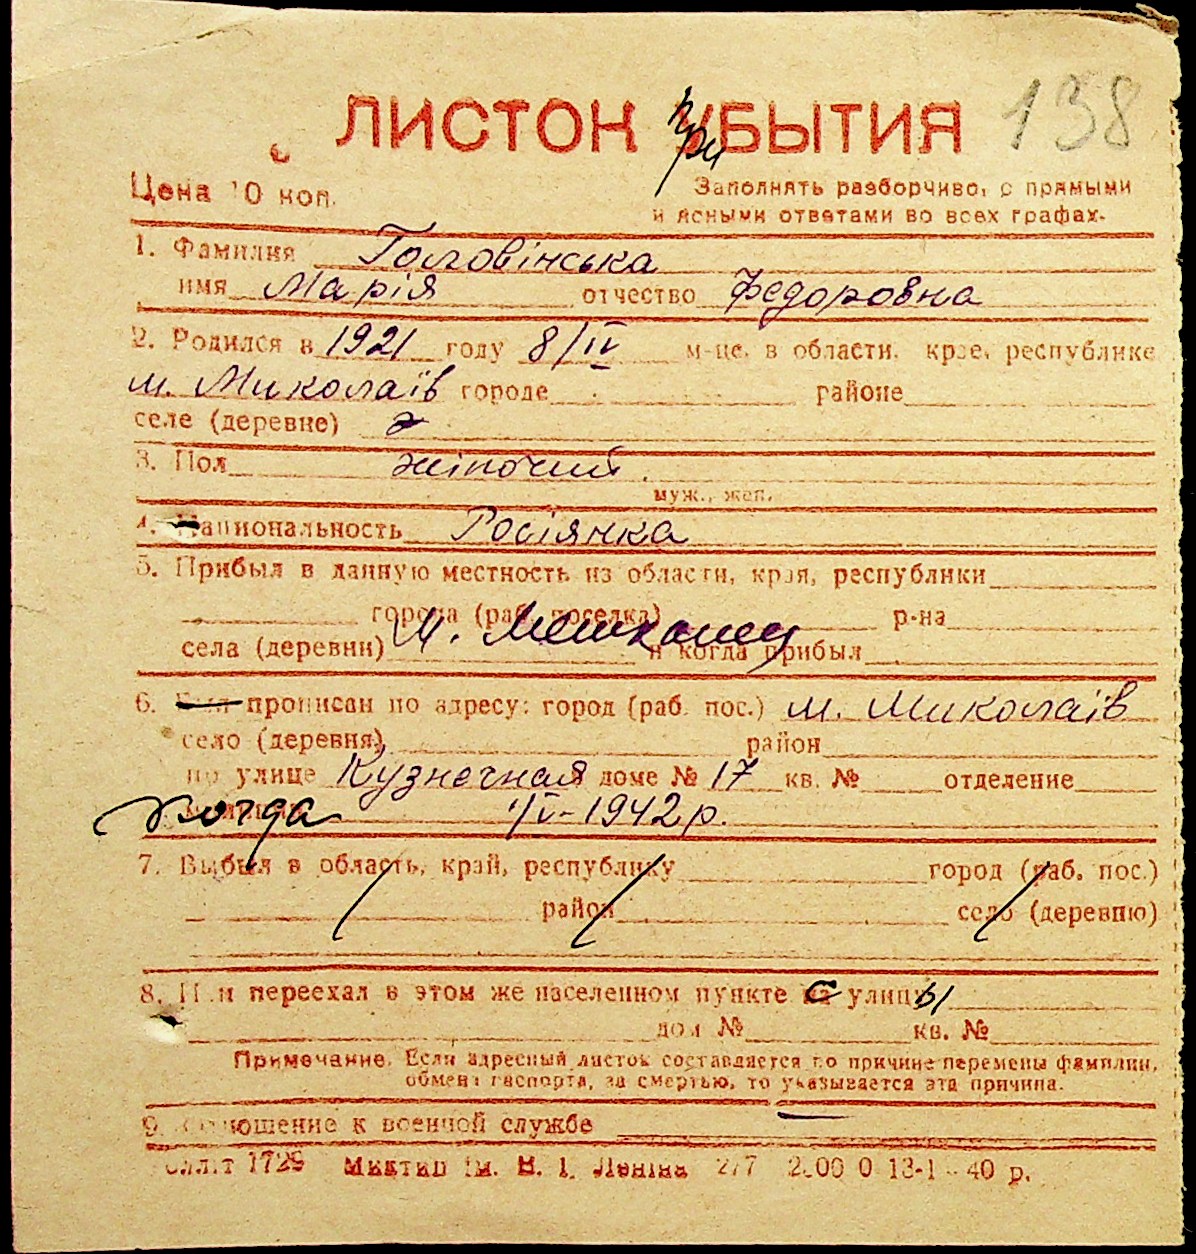 ЛИСТОК прибЫТИЯ 138
Цена 10 коп.
Заполнять разборчиво, с прямыми
и ясными ответами во всех графах.
1. Фамилия Головінська
имя Марія отчество Федоровна
2. Родился в 1921 году 8/IV м-це, в области, крае, республике
м. Миколаїв городе районе
селе (деревне)
3. Пол жіночий
муж., жен.
4. Национальность Росіянка
5. Прибыл в данную местность из области, края, республики
города (раб. поселка) р-на
села (деревни) М. Мешканец и когда прибыл
6. Был прописан по адресу: город (раб. пос.) м. Миколаїв
село (деревня) район
по улице Кузнечная доме № 17 кв. № отделение
когда IV-1942 р.
7. Выбыл в область, край, республику город (раб. пос.)
район село (деревню)
8. Или переехал в этом же населенном пункте с улицы
дом № кв. №
Примечание. Если адресный листок составляется по причине перемены фамилии,
обмена паспорта, за смертью, то указывается эта причина.
9. Отношение к военной службе
1729 ім. В. І. Леніна 277 40 р.